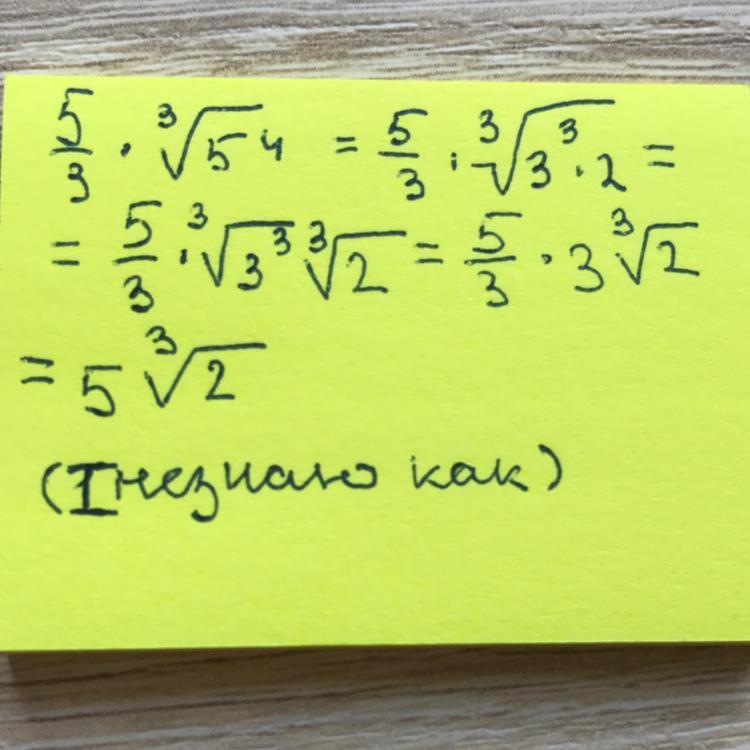 5/3 · ∛54 = 5/3 · ∛(3³ · 2) =
= 5/3 · ∛(3³) ∛2 = 5/3 · 3 ∛2
= 5 ∛2
(I незнаю как)